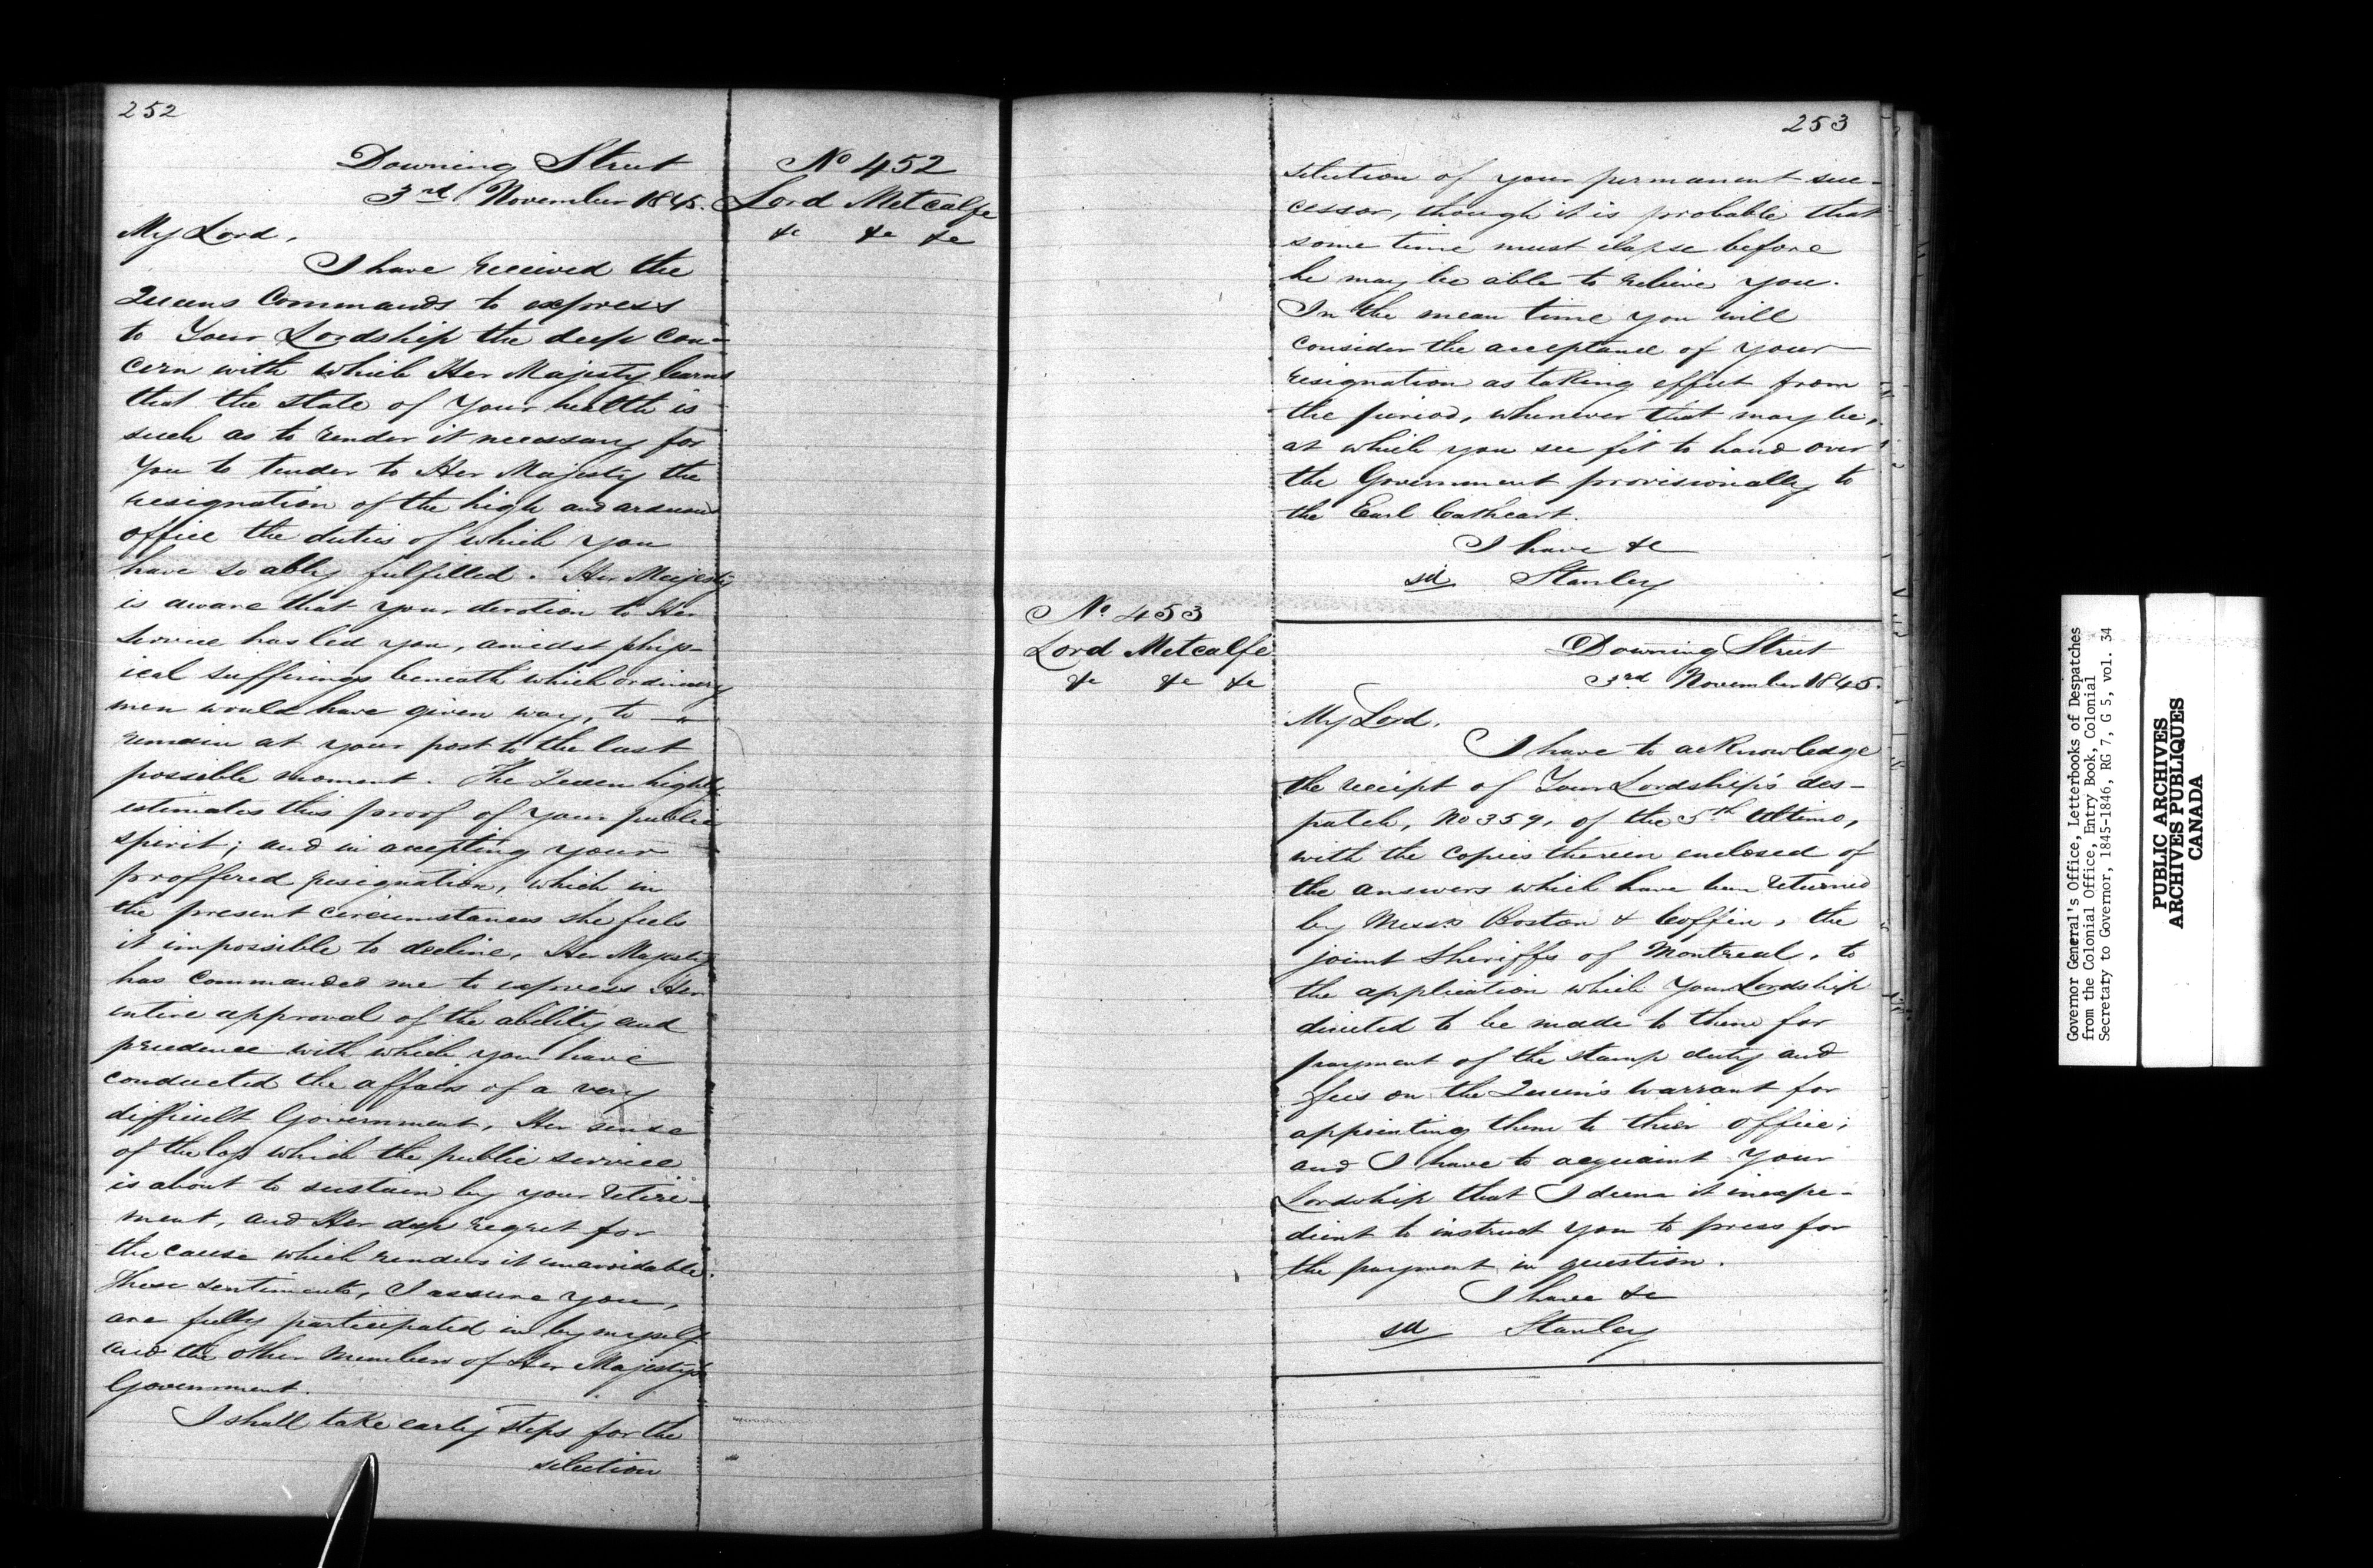 252
Downing Street
3rd November 1845.
No 452
Lord Metcalfe
&c &c &c
My Lord,
I have received the
Queens Commands to express
to Your Lordship the deep con-
cern with which Her Majesty learns
that the state of Your health is
such as to render it necessary for
You to tender to Her Majesty the
resignation of the high and arduous
office the duties of which you
have so ably fulfilled. Her Majesty
is aware that your devotion to Her
Service has led you, amidst phys-
ical sufferings beneath which ordinary
men would have given way, to
remain at your post to the last
possible moment. The Queen highly
estimates this proof of your public
spirit; and in accepting your
proffered resignation, which in
the present circumstances she feels
it impossible to decline, Her Majesty
has commanded me to express Her
entire approval of the ability and
prudence with which you have
conducted the affairs of a very
difficult Government, Her sense
of the loss which the public service
is about to sustain by your retire-
ment, and Her deep regret for
the cause which renders it unavoidable.
These sentiments, I assure you,
are fully participated in by myself
and the other Members of Her Majesty's
Government.
I shall take early steps for the
selection
253
selection of your permanent suc-
cessor, though it is probable that
some time must elapse before
he may be able to relieve you.
In the mean time you will
consider the acceptance of your
resignation as taking effect from
the period, whenever that may be,
at which you see fit to hand over
the Government provisionally to
the Earl Cathcart.
I have &c
sd Stanley
No. 453
Lord Metcalfe
&c &c &c
Downing Street
3rd November 1845.
My Lord,
I have to acknowledge
the receipt of Your Lordship's des-
patch, No 359, of the 5th Ultimo,
with the copies therein enclosed of
the answers which have been returned
by Messrs Boston & Coffin, the
joint Sheriffs of Montreal, to
the application which Your Lordship
directed to be made to them for
payment of the stamp duty and
fees on the Queen's warrant for
appointing them to their office;
and I have to acquaint Your
Lordship that I deem it inexpe-
dient to instruct you to press for
the payment in question.
I have &c
sd Stanley
Governor General's Office, Letterbooks of Despatches
from the Colonial Office, Entry Book, Colonial
Secretary to Governor, 1845-1846, RG 7, G 5, vol. 34
PUBLIC ARCHIVES
ARCHIVES PUBLIQUES
CANADA